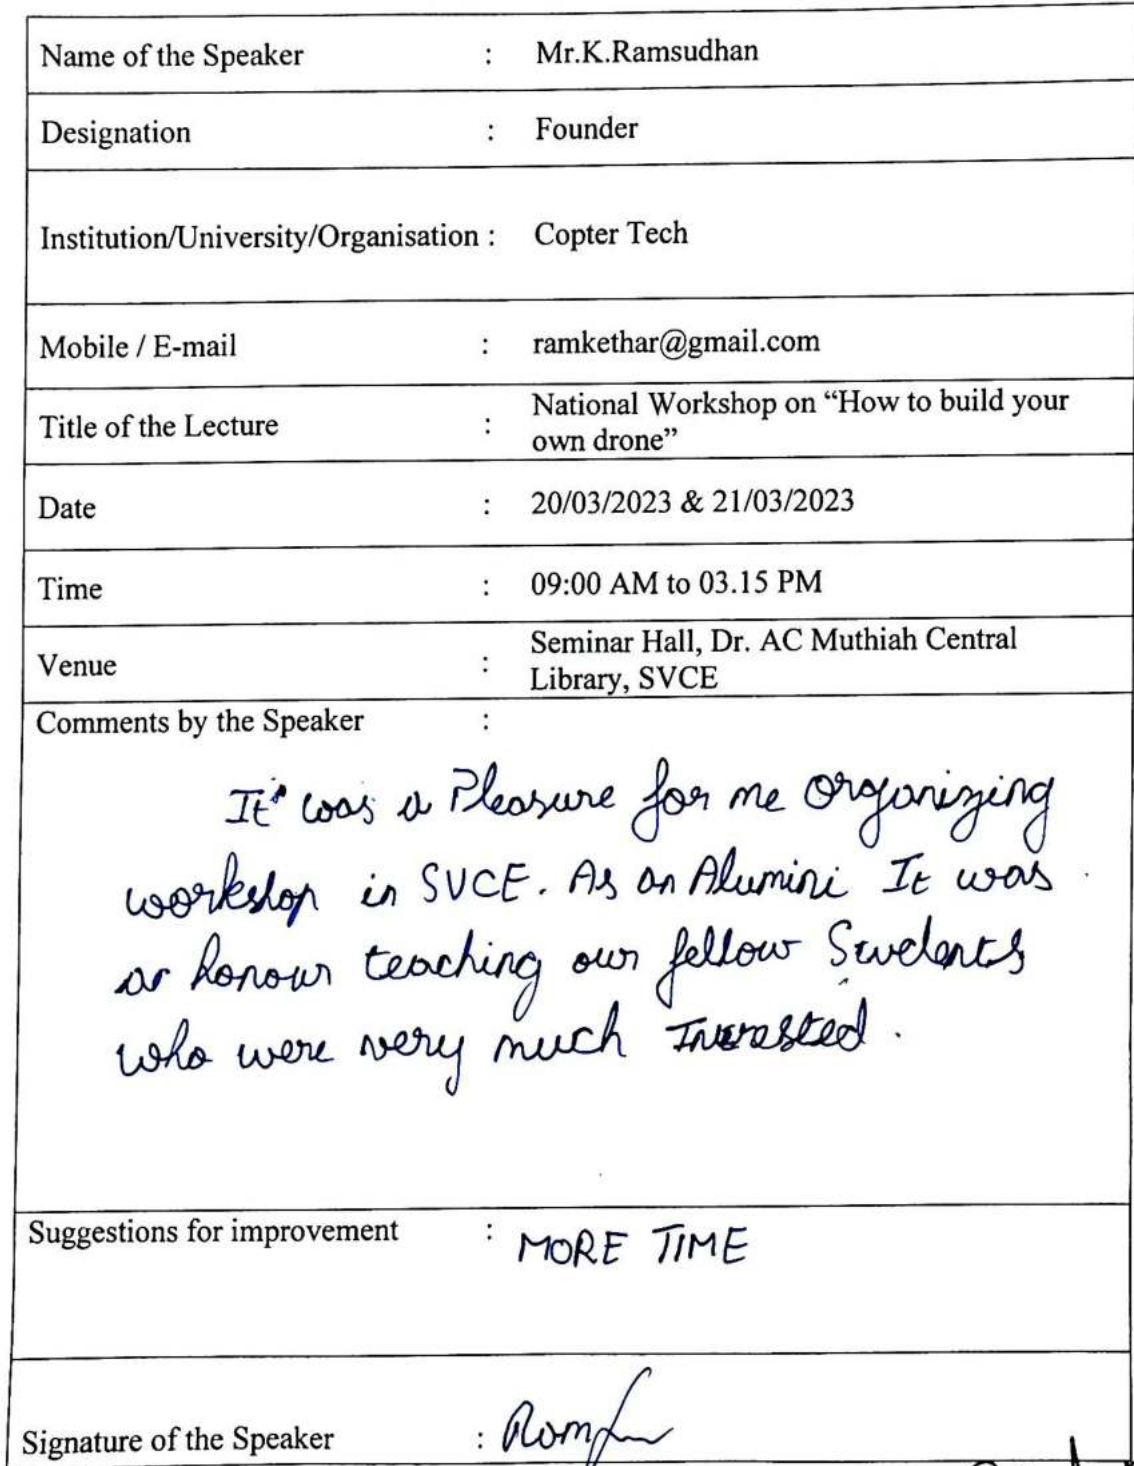 Name of the Speaker : Mr.K.Ramsudhan
Designation : Founder
Institution/University/Organisation : Copter Tech
Mobile / E-mail : ramkethar@gmail.com
Title of the Lecture : National Workshop on “How to build your
own drone”
Date : 20/03/2023 & 21/03/2023
Time : 09:00 AM to 03.15 PM
Venue : Seminar Hall, Dr. AC Muthiah Central
Library, SVCE
Comments by the Speaker :
It was a Pleasure for me Organizing
workshop in SVCE. As an Alumini It was
an honour teaching our fellow Students
who were very much Interested.
Suggestions for improvement : MORE TIME
Signature of the Speaker :